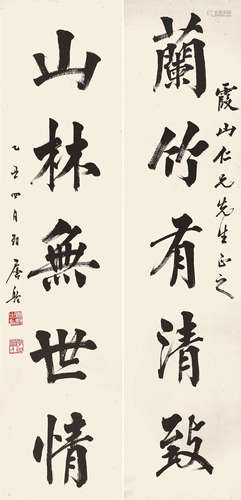 霞山仁兄先生正之
蘭竹有清致
山林無世情
乙丑四月